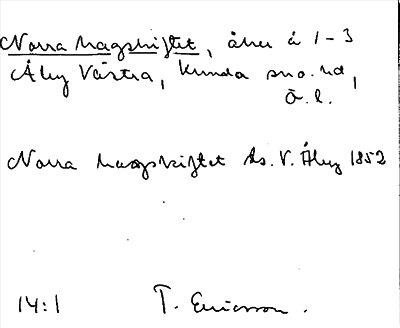 Norra Hagskiftet, åker å 1-3
Åby Västra, Kumla sn o. hd,
Ö.l.
Norra Hagskiftet Ls. V. Åby 1852
14:1 T. Ericsson.